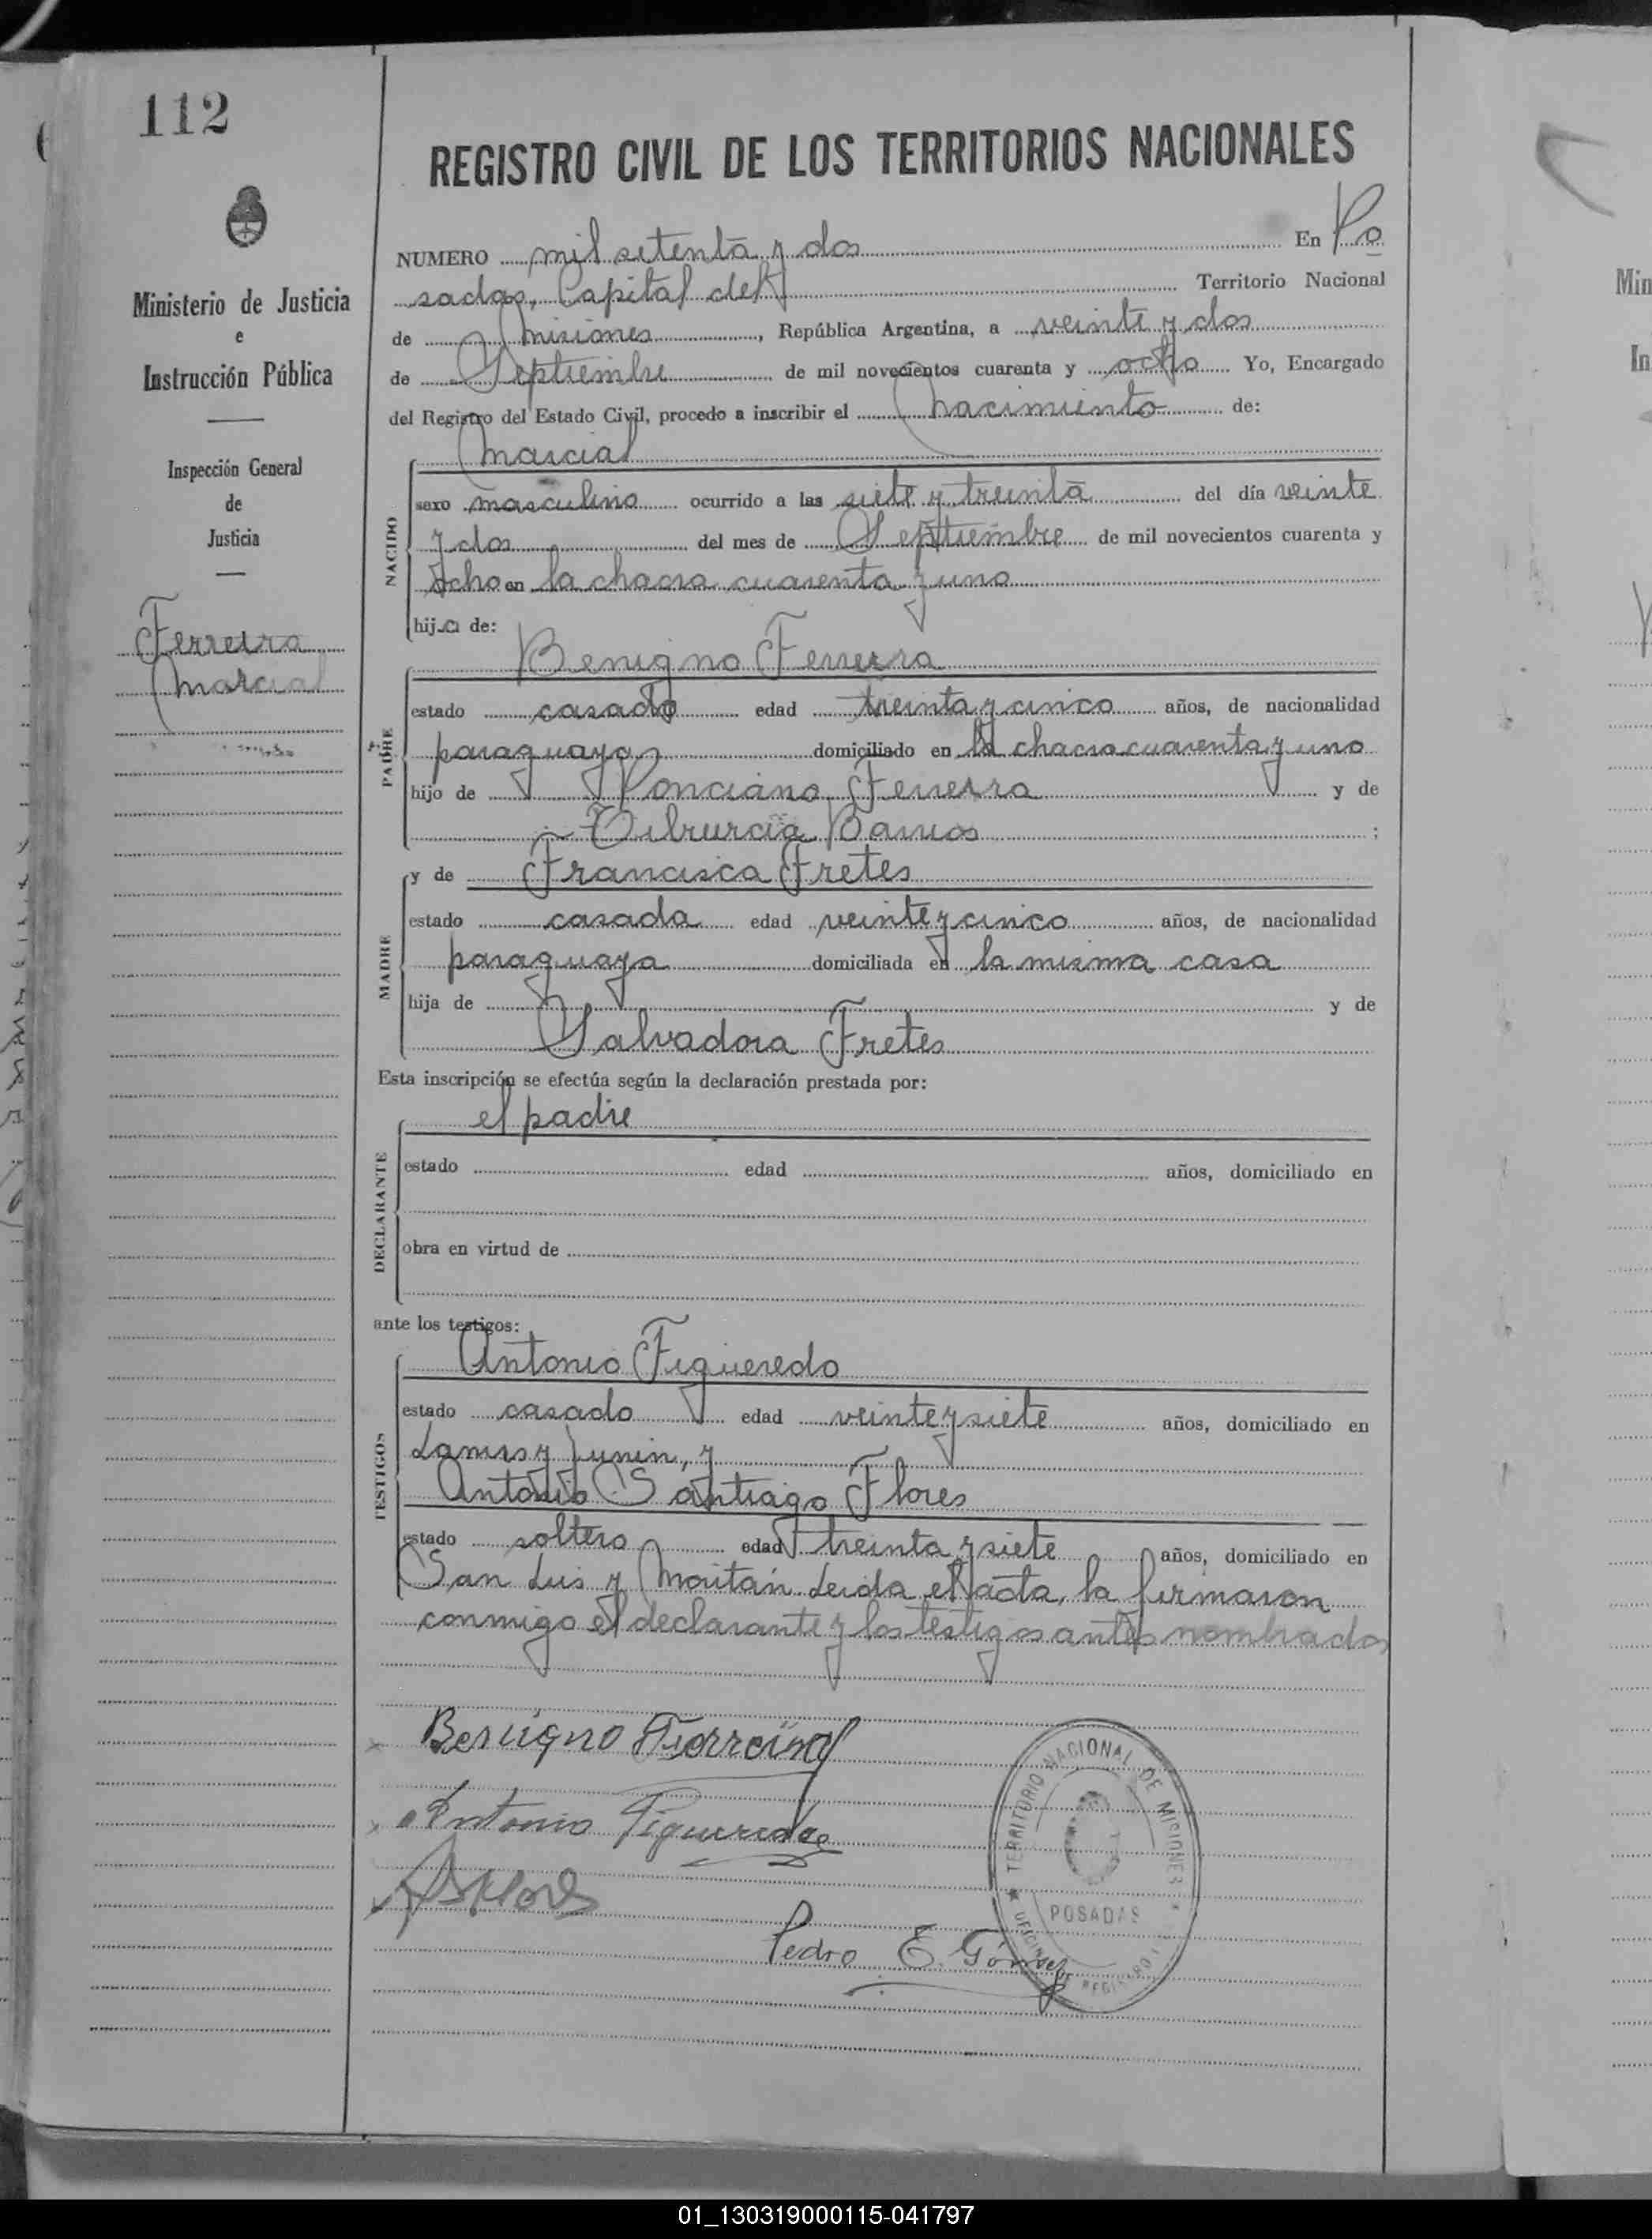 112
REGISTRO CIVIL DE LOS TERRITORIOS NACIONALES
NUMERO mil setenta y dos En Po
sadas, Capital del Territorio Nacional
de Misiones, República Argentina, a veinte y dos
de Septiembre de mil novecientos cuarenta y ocho Yo, Encargado
del Registro del Estado Civil, procedo a inscribir el nacimiento de:
Ministerio de Justicia
e
Instrucción Pública
Inspección General
de
Justicia
Ferreira
Marcial
NACIDO
Marcial
sexo masculino ocurrido a las siete y treinta del día veinte
y dos del mes de Septiembre de mil novecientos cuarenta y
ocho en la chacra cuarenta y uno
hijo de:
PADRE
Benigno Ferreira
estado casado edad treinta y cinco años, de nacionalidad
paraguaya domiciliado en la chacra cuarenta y uno
hijo de Ponciano Ferreira y de
Tiburcia Barrios;
MADRE
y de Francisca Fretes
estado casada edad veinte y cinco años, de nacionalidad
paraguaya domiciliada en la misma casa
hija de y de
Salvadora Fretes
Esta inscripción se efectúa según la declaración prestada por:
DECLARANTE
el padre
estado edad años, domiciliado en
obra en virtud de
ante los testigos:
TESTIGOS
Antonio Figueredo
estado casado edad veinte y siete años, domiciliado en
y Junin, y
Antonio Santiago Flores
estado soltero edad treinta y siete años, domiciliado en
San Luis y Leida el acta, la firmaron
conmigo el declarante y los testigos antes nombrados
Benigno Ferreira
Antonio Figueredo
ASFlores
Pedro E.
TERRITORIO NACIONAL DE MISIONES
POSADAS
Min
In
01_130319000115-041797